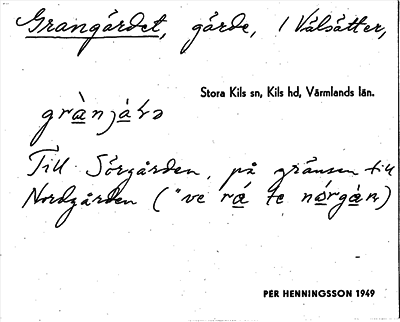 Grangärdet, gärde, i Välsätter,
Stora Kils sn, Kils hd, Värmlands län.
grànjáʹɿə
Till Sörgården, på gränsen till
Nordgården ("ve rá te nórgàɳ)
PER HENNINGSSON 1949